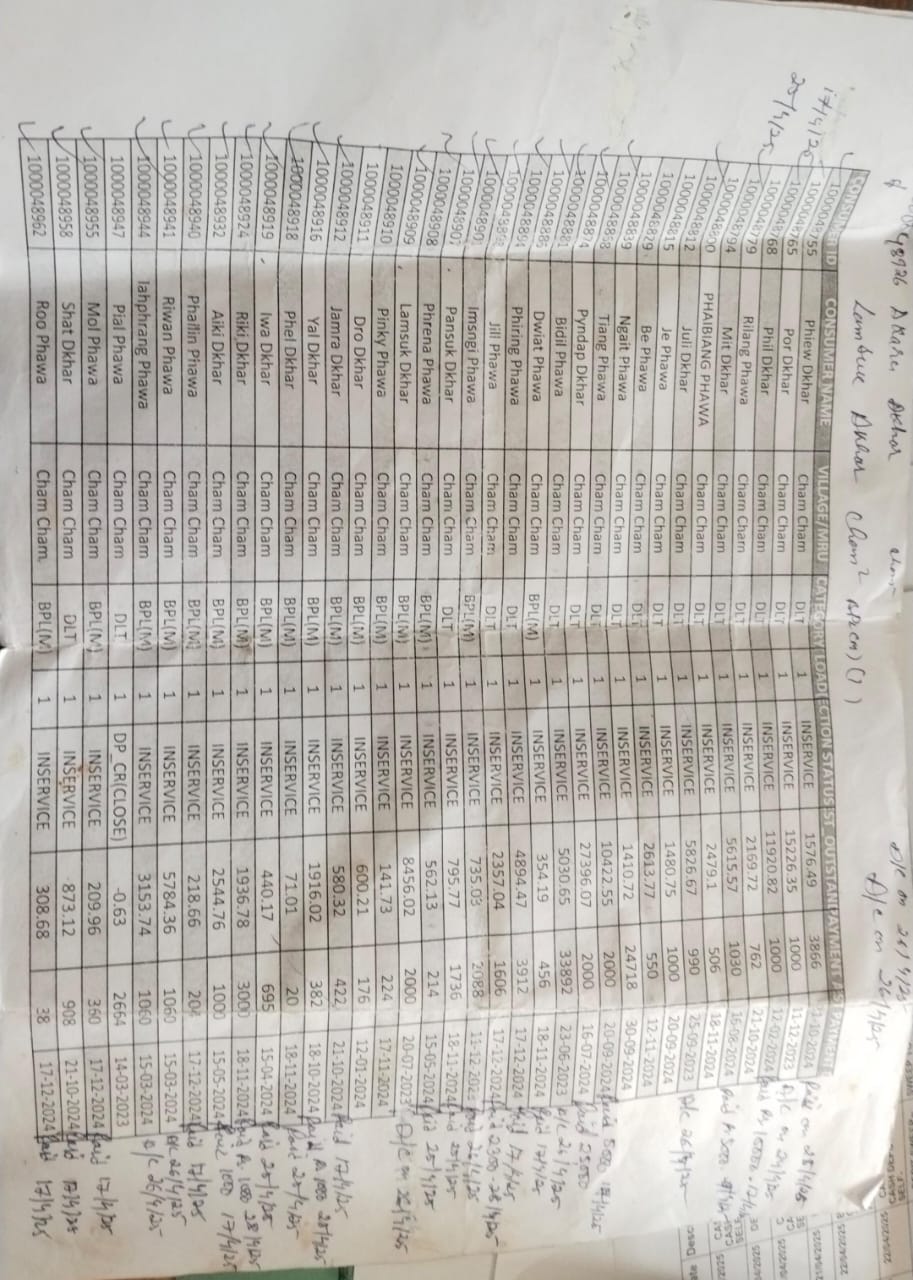 48926 Dkhar D/c on 26/4/25
Lambue Dkhar Cham² (1) D/c on 26/4/25
17/4/25
25/4/25
CONSUMER NAME VILLAGE/MRU CATEGORY LOAD
1000048755 Phiew Dkhar Cham Cham DLT 1 INSERVICE 1576.49 3866 21-10-2024 Paid on 25/4/25
1000048765 Por Dkhar Cham Cham DLT 1 INSERVICE 15226.35 1000 11-12-2023 D/c on 24/4/25
1000048768 Phil Dkhar Cham Cham DLT 1 INSERVICE 11920.82 1000 12-02-2024
1000048779 Rilang Phawa Cham Cham DLT 1 INSERVICE 2169.72 762 21-10-2024
1000048794 Mit Dkhar Cham Cham DLT 1 INSERVICE 5615.57 1030 16-08-2024
1000048800 PHAIBIANG PHAWA Cham Cham DLT 1 INSERVICE 2479.1 506 18-11-2024
1000048812 Juli Dkhar Cham Cham DLT 1 INSERVICE 5826.67 990 25-09-2023 D/c 26/4/25
1000048815 Je Pawa Cham Cham DLT 1 INSERVICE 1480.75 1000 20-09-2024
1000048829 Be Phawa Cham Cham DLT 1 INSERVICE 2613.77 550 12-11-2024
1000048839 Ngait Phawa Cham Cham DLT 1 INSERVICE 1410.72 24718 30-09-2024
1000048868 Tiang Phawa Cham Cham DLT 1 INSERVICE 10422.55 2000 20-09-2024 Paid 5000
1000048874 Pyndap Dkhar Cham Cham DLT 1 INSERVICE 27396.07 2000 16-07-2024 Paid
1000048881 Bidil Phawa Cham Cham DLT 1 INSERVICE 5030.65 33892 23-06-2023 D/c 26/4/25
1000048885 Dwiat Phawa Cham Cham BPL(M) 1 INSERVICE 354.19 456 18-11-2024 Paid 17/4/25
1000048894 Phiring Phawa Cham Cham DLT 1 INSERVICE 4894.47 3912 17-12-2024 Paid 17/4/25
1000048898 Jill Phawa Cham Cham DLT 1 INSERVICE 2357.04 1606 17-12-2024 Paid 2300
1000048901 Imsngi Phawa Cham Cham BPL(M) 1 INSERVICE 735.03 2088 11-12-2023
1000048907 Pansuk Dkhar Cham Cham DLT 1 INSERVICE 795.77 1736 18-11-2024 Paid 25/4/25
1000048908 Phrena Phawa Cham Cham BPL(M) 1 INSERVICE 562.13 214 15-05-2024 Paid 25/4/25
1000048909 Lamsuk Dkhar Cham Cham BPL(M) 1 INSERVICE 8456.02 2000 20-07-2023 D/c on 26/4/25
1000048910 Pinky Phawa Cham Cham BPL(M) 1 INSERVICE 141.73 224 17-11-2024
1000048911 Dro Dkhar Cham Cham BPL(M) 1 INSERVICE 600.21 176 12-01-2024
1000048912 Jamra Dkhar Cham Cham BPL(M) 1 INSERVICE 580.32 422 21-10-2024 Paid 17/4/25
1000048916 Yal Dkhar Cham Cham BPL(M) 1 INSERVICE 1916.02 382 18-10-2024 Paid R. 1000 25/4/25
1000048918 Phel Dkhar Cham Cham BPL(M) 1 INSERVICE 71.01 20 18-11-2024 Paid 25/4/25
1000048919 Iwa Dkhar Cham Cham BPL(M) 1 INSERVICE 440.17 695 15-04-2024 Paid 25/4/25
1000048924 Riki Dkhar Cham Cham BPL(M) 1 INSERVICE 1936.78 3000 18-11-2024 Paid R. 1000 28/4/25
1000048932 Aiki Dkhar Cham Cham BPL(M) 1 INSERVICE 2544.76 1000 15-05-2024 Paid 1000 17/4/25
1000048940 Phallin Phawa Cham Cham BPL(M) 1 INSERVICE 218.66 204 17-12-2024 Paid 17/4/25
1000048941 Riwan Phawa Cham Cham BPL(M) 1 INSERVICE 5784.36 1060 15-03-2024 D/c 26/4/25
1000048944 Iahphrang Phawa Cham Cham BPL(M) 1 INSERVICE 3153.74 1060 15-03-2024 D/c 26/4/25
1000048947 Pial Phawa Cham Cham DLT 1 DP_CR(CLOSE) -0.63 2664 14-03-2023
1000048955 Mol Phawa Cham Cham BPL(M) 1 INSERVICE 209.96 360 17-12-2024 Paid 17/4/25
1000048958 Shat Dkhar Cham Cham DLT 1 INSERVICE 873.12 908 21-10-2024 Paid 17/4/25
1000048962 Roo Phawa Cham Cham BPL(M) 1 INSERVICE 308.68 38 17-12-2024 Paid 17/4/25